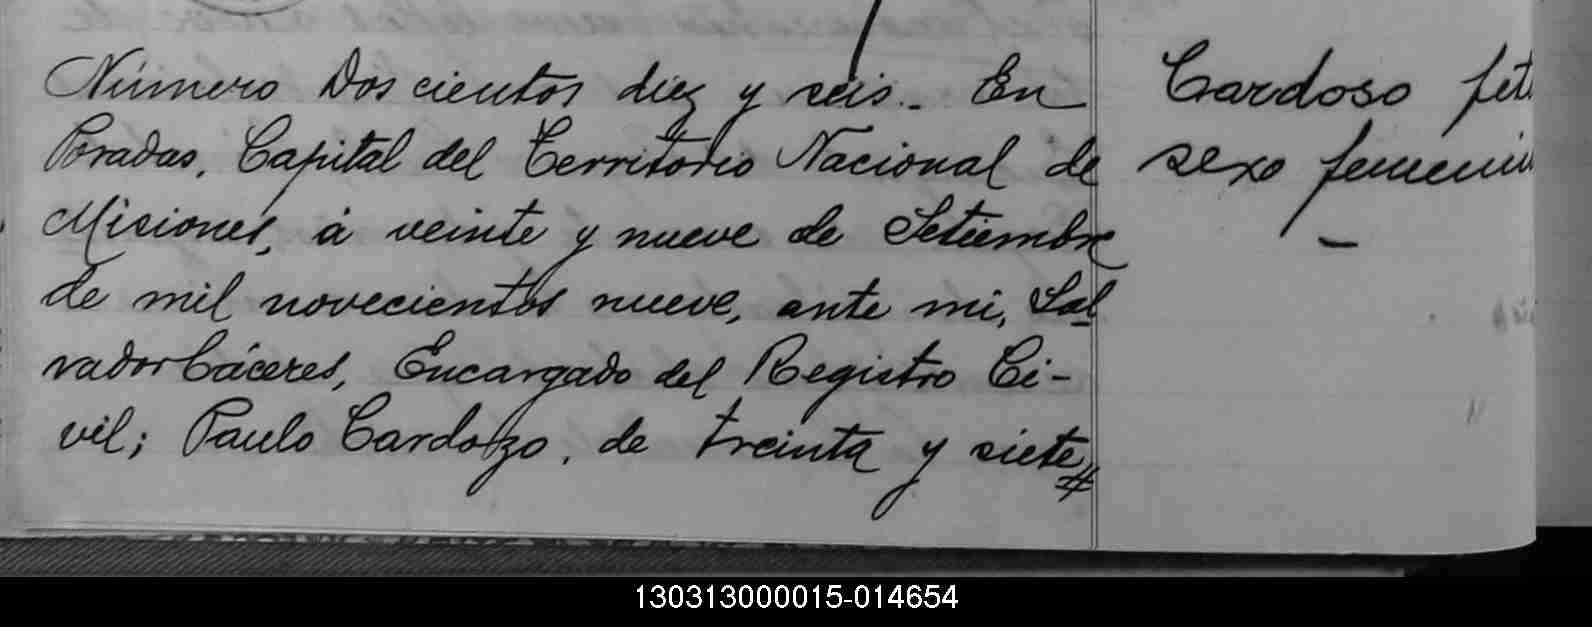 Número Doscientos diez y seis. En
Posadas, Capital del Territorio Nacional de
Misiones, á veinte y nueve de Setiembre
de mil novecientos nueve, ante mi, Sal
vador Cáceres, Encargado del Registro Ci-
vil; Paulo Cardozo, de treinta y siete
Cardoso fet
sexo femenin
130313000015-014654